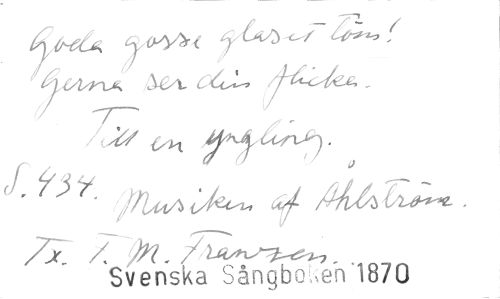 Goda gosse glaset töm!
Gerna ser din flicka.
Till en yngling.
S. 434. Musiken af Åhlström.
Tx. F. M. Franzen.
Svenska Sångboken 1870